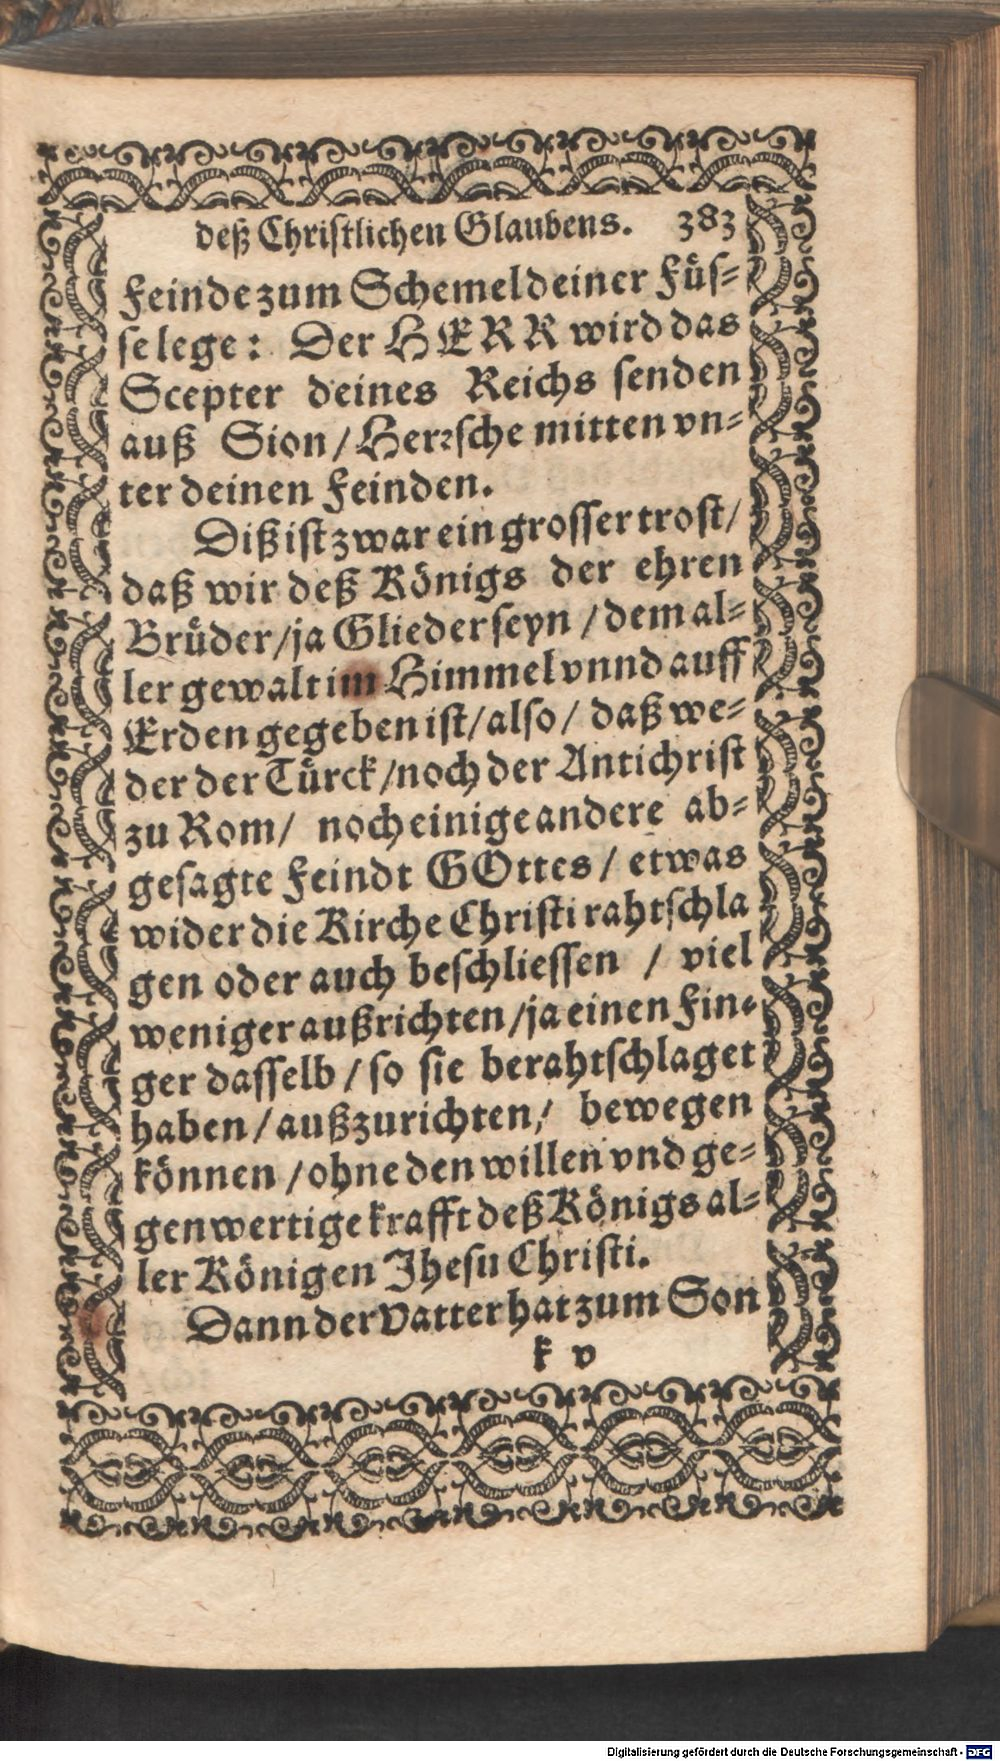 deß Christlichen Glaubens. 383
Feinde zum Schemel deiner Füs=
se lege: Der HERR wird das
Scepter deines Reichs senden
auß Sion/ Herꝛsche mitten vn=
ter deinen Feinden.
Diß ist zwar ein grosser trost/
daß wir deß Königs der ehren
Brüder/ ja Glieder seyn / dem al=
ler gewalt im Himmel vnnd auff
Erden gegeben ist/ also/ daß we=
der der Türck/ noch der Antichrist
zu Rom/ noch einige andere ab=
gesagte Feindt GOttes/ etwas
wider die Kirche Christi rahtschla
gen oder auch beschliessen / viel
weniger außrichten/ ja einen Fin=
ger dasselb / so sie berahtschlaget
haben/ außzurichten/ bewegen
können / ohne den willen vnd ge=
genwertige krafft deß Königs al=
ler Königen Jhesu Christi.
Dann der Vatter hat zum Son
k v
Digitalisierung gefördert durch die Deutsche Forschungsgemeinschaft - DFG